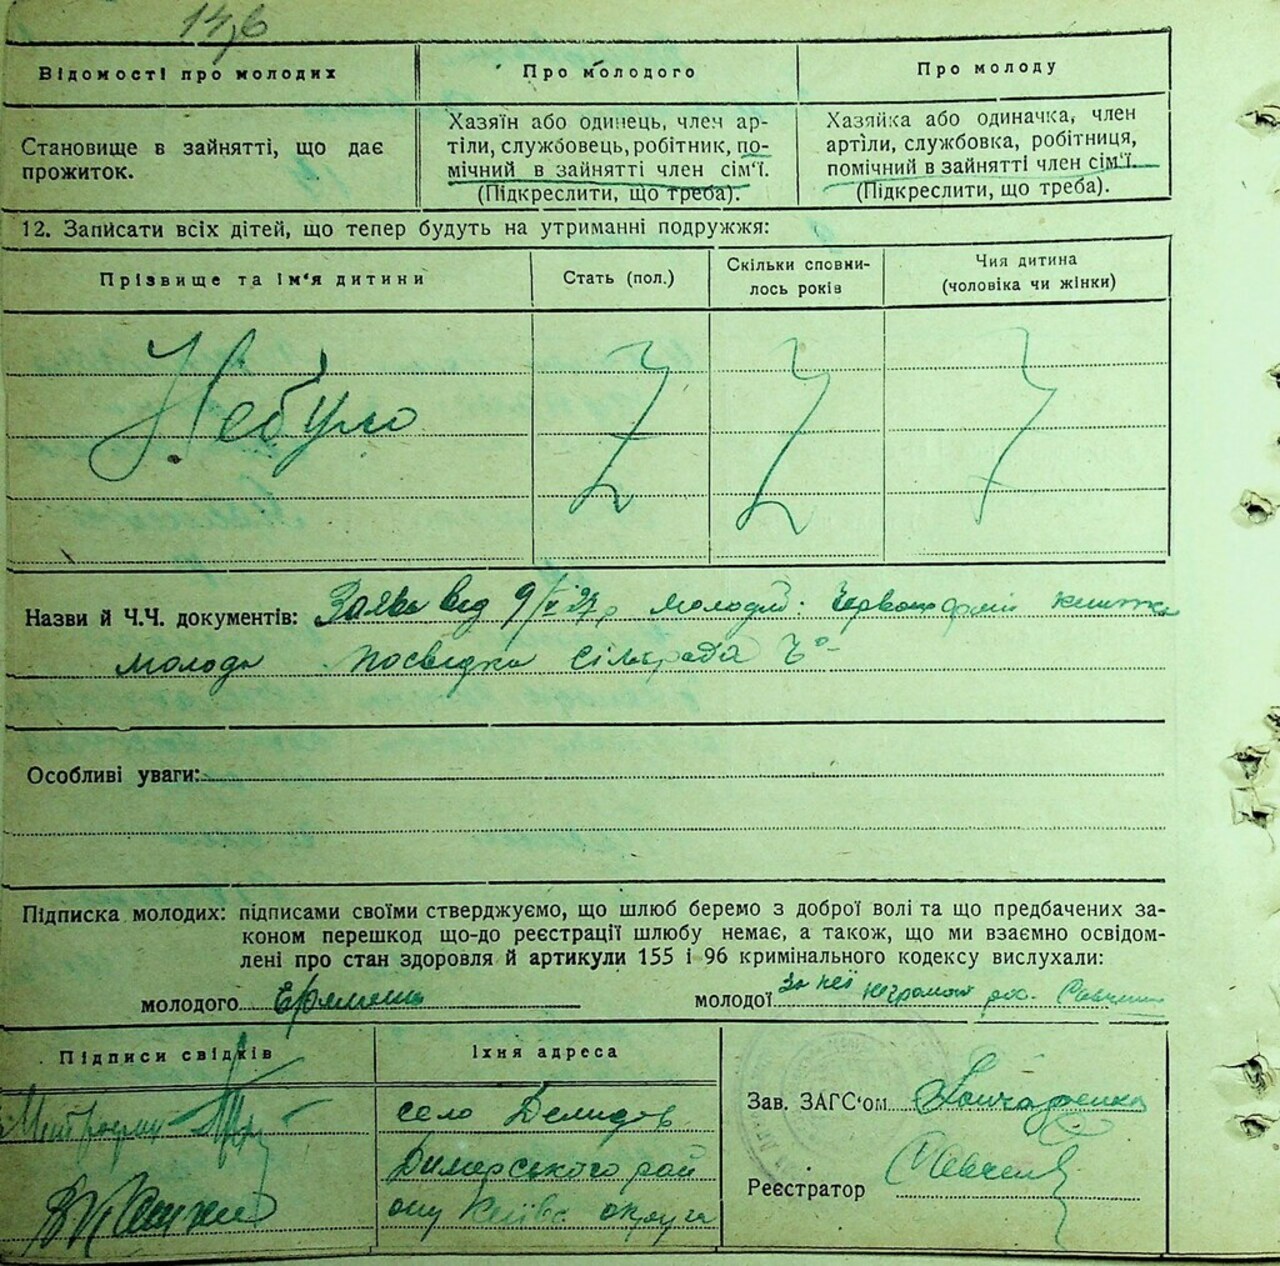 Відомості про молодих
Про молодого
Про молоду
Становище в зайнятті, що дає
прожиток.
Хазяїн або одинець, член ар-
тіли, службовець, робітник, по-
мічний в зайнятті член сім'ї.
(Підкреслити, що треба).
Хазяйка або одиначка, член
артіли, службовка, робітниця,
помічний в зайнятті член сім'ї.
(Підкреслити, що треба).
12. Записати всіх дітей, що тепер будуть на утриманні подружжя:
Прізвище та ім'я дитини
Стать (пол.)
Скільки сповни-
лось років
Чия дитина
(чоловіка чи жінки)
Небуло
Назви й Ч.Ч. документів: Заява від молодий: книжка
молода посвідка сільради
Особливі уваги:
Підписка молодих: підписами своїми стверджуємо, що шлюб беремо з доброї волі та що предбачених за-
коном перешкод що-до реєстрації шлюбу немає, а також, що ми взаємно освідом-
лені про стан здоровля й артикули 155 і 96 кримінального кодексу вислухали:
молодого
молодої За неї
Підписи свідків
Їхня адреса
село Демидов
Димерського рай
ону Київс округа
Зав. ЗАГС'ом Гончаренко
Реєстратор